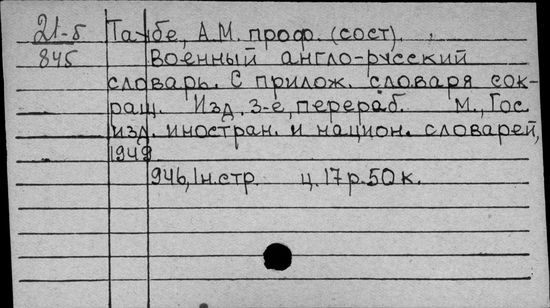 21-б
845
Таубе, А.М. проф. (сост).
Военный англо-русский
словарь. С прилож. словаря сок-
ращ. Изд. 3-е, перераб. М., Гос.
изд. иностран. и национ. словарей,
1949
946, 1 н. стр. ц. 17 р. 50 к.